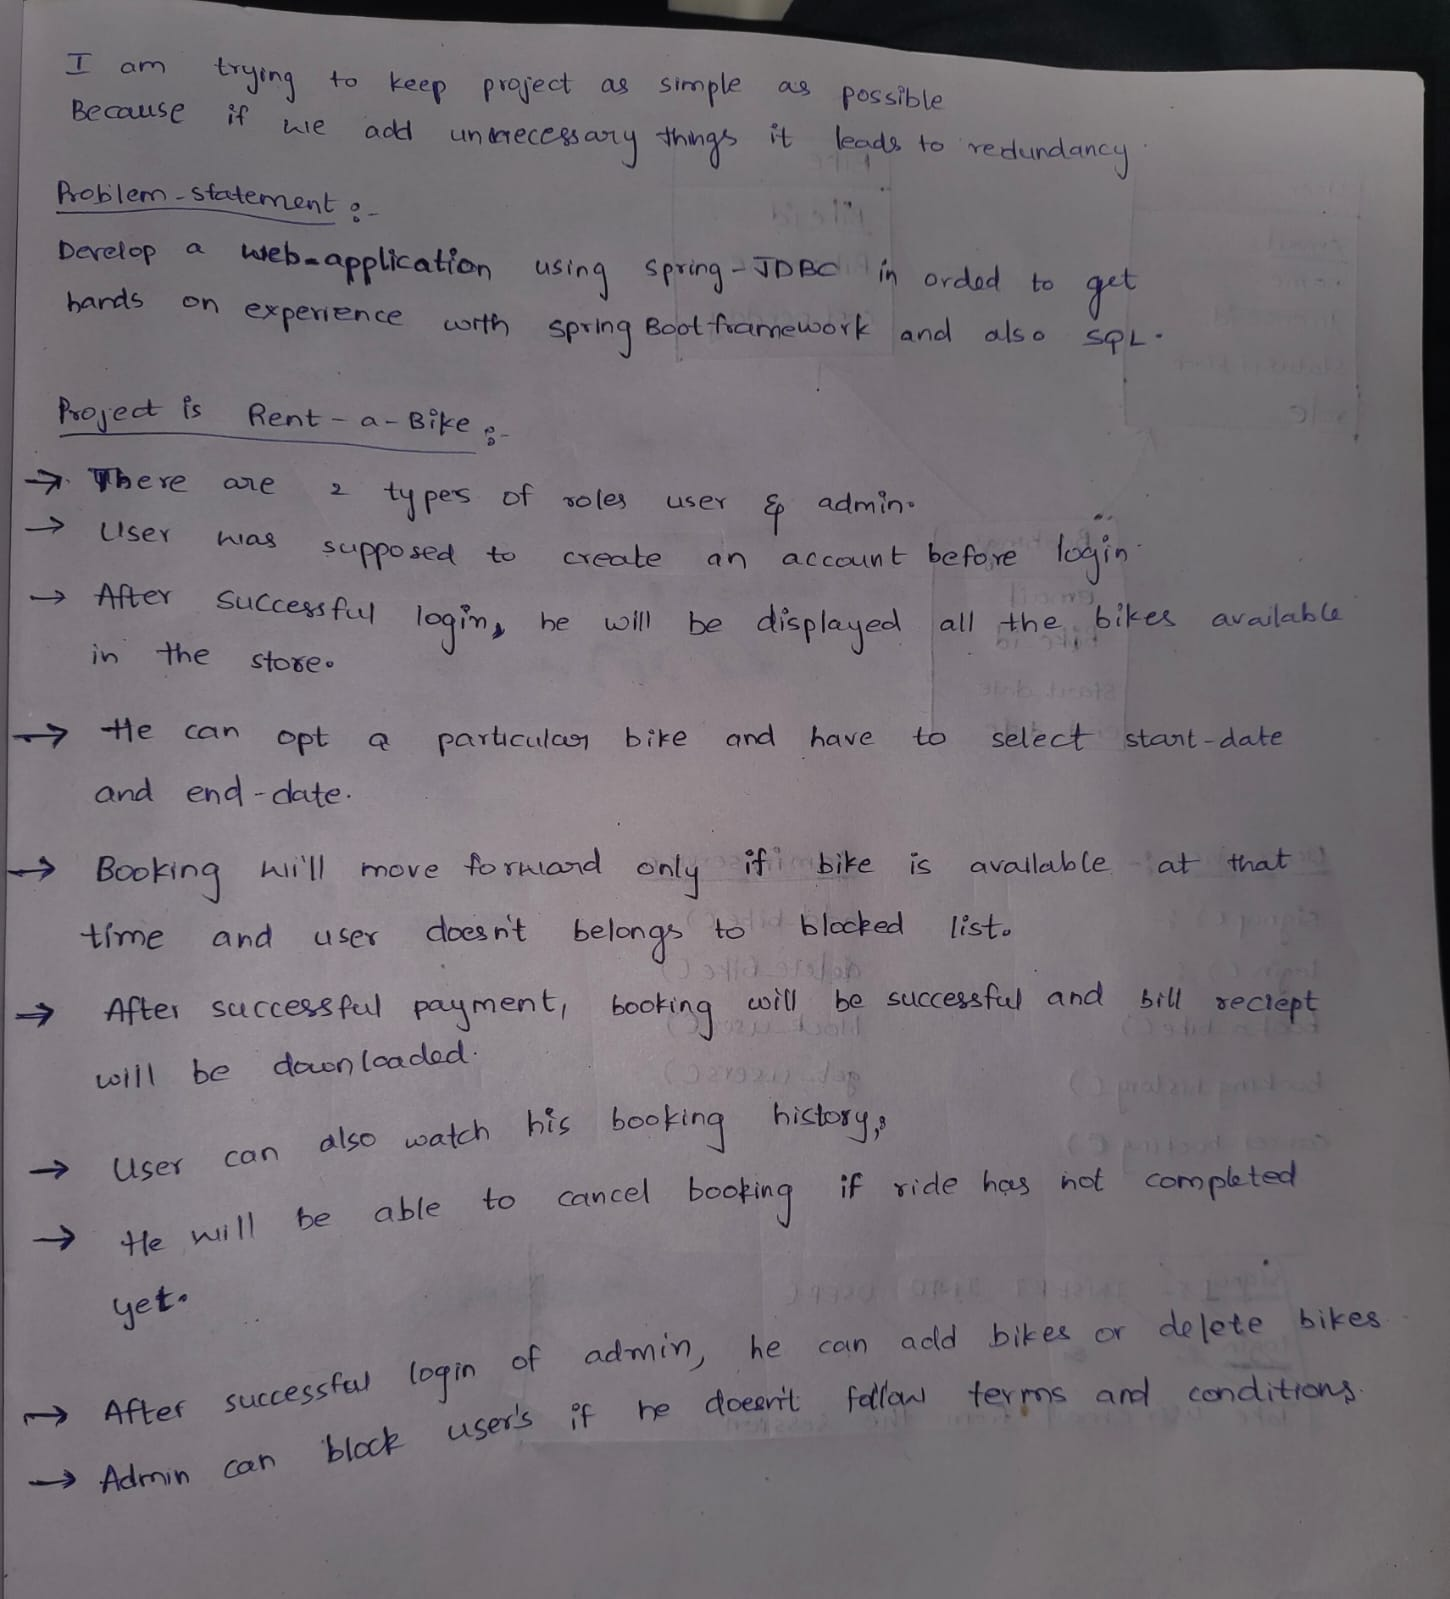 I am trying to keep project as simple as possible
Because if we add unnecessary things it leads to redundancy.
Problem-statement :-
Develop a web-application using spring-JDBC in orded to get
hands on experience with spring Boot framework and also SQL.
Project is Rent-a-Bike :-
→ There are 2 types of roles user & admin.
→ User was supposed to create an account before login.
→ After successful login, he will be displayed all the bikes available
in the store.
→ He can opt a particular bike and have to select start-date
and end-date.
→ Booking will move forward only if bike is available at that
time and user doesn't belongs to blocked list.
→ After successful payment, booking will be successful and bill reciept
will be downloaded.
→ User can also watch his booking history,
→ He will be able to cancel booking if ride has not completed
yet.
→ After successful login of admin, he can add bikes or delete bikes
→ Admin can block user's if he doesn't follow terms and conditions.